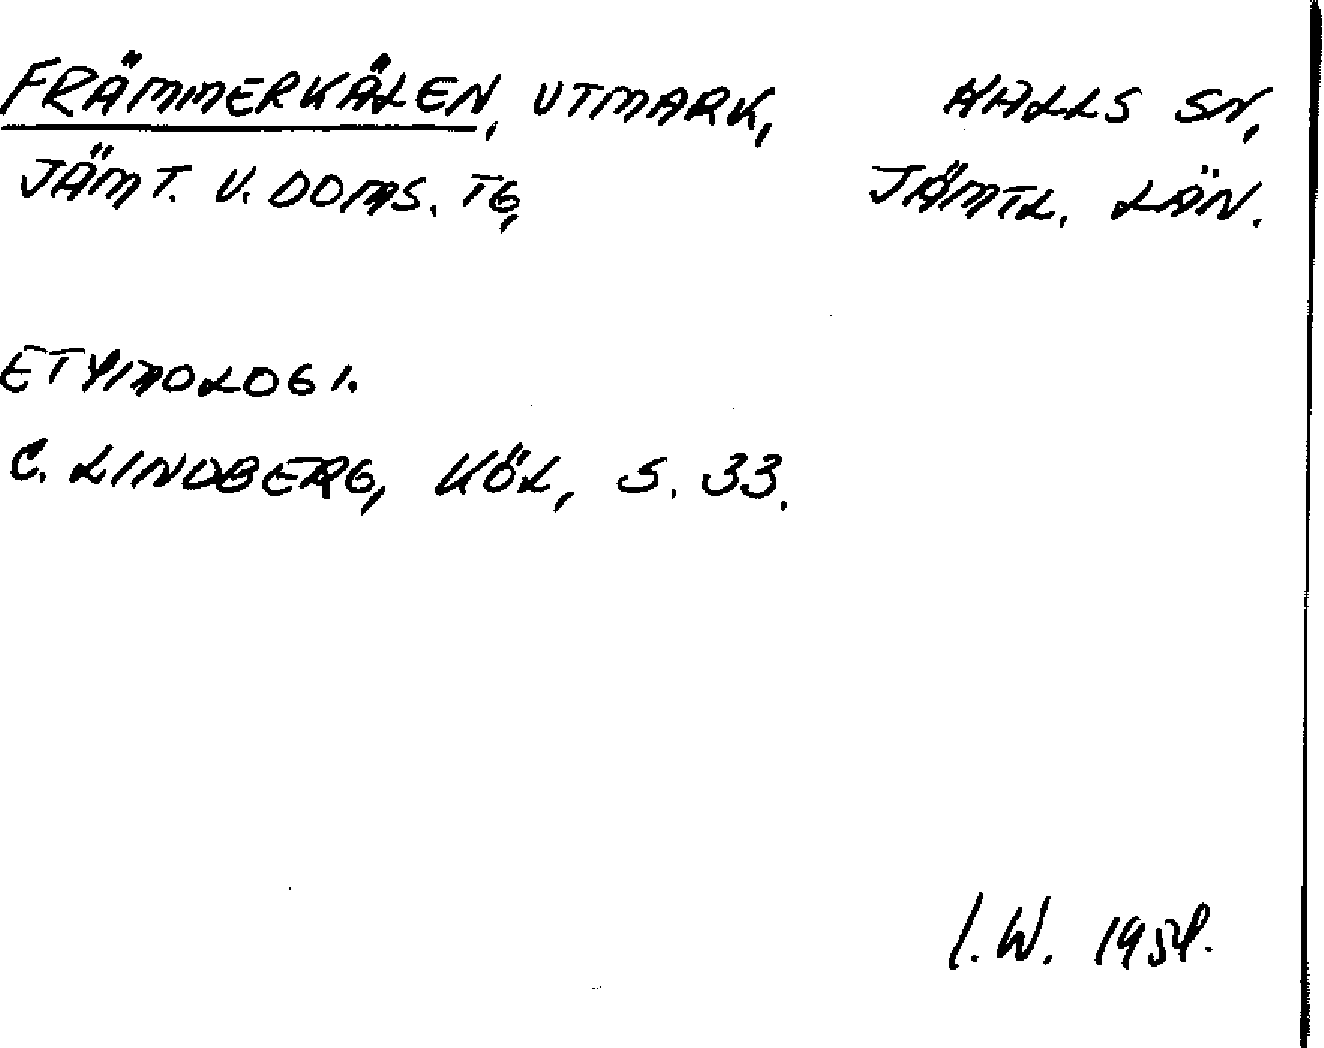 FRÄMMERKÄLEN, UTMARK, HALLS SN,
JÄMT. V. DOMS. TG, JÄMTL. LÄN.
ETYMOLOGI.
C. LINDBERG, KÖL, S. 33.
I. W. 1954.